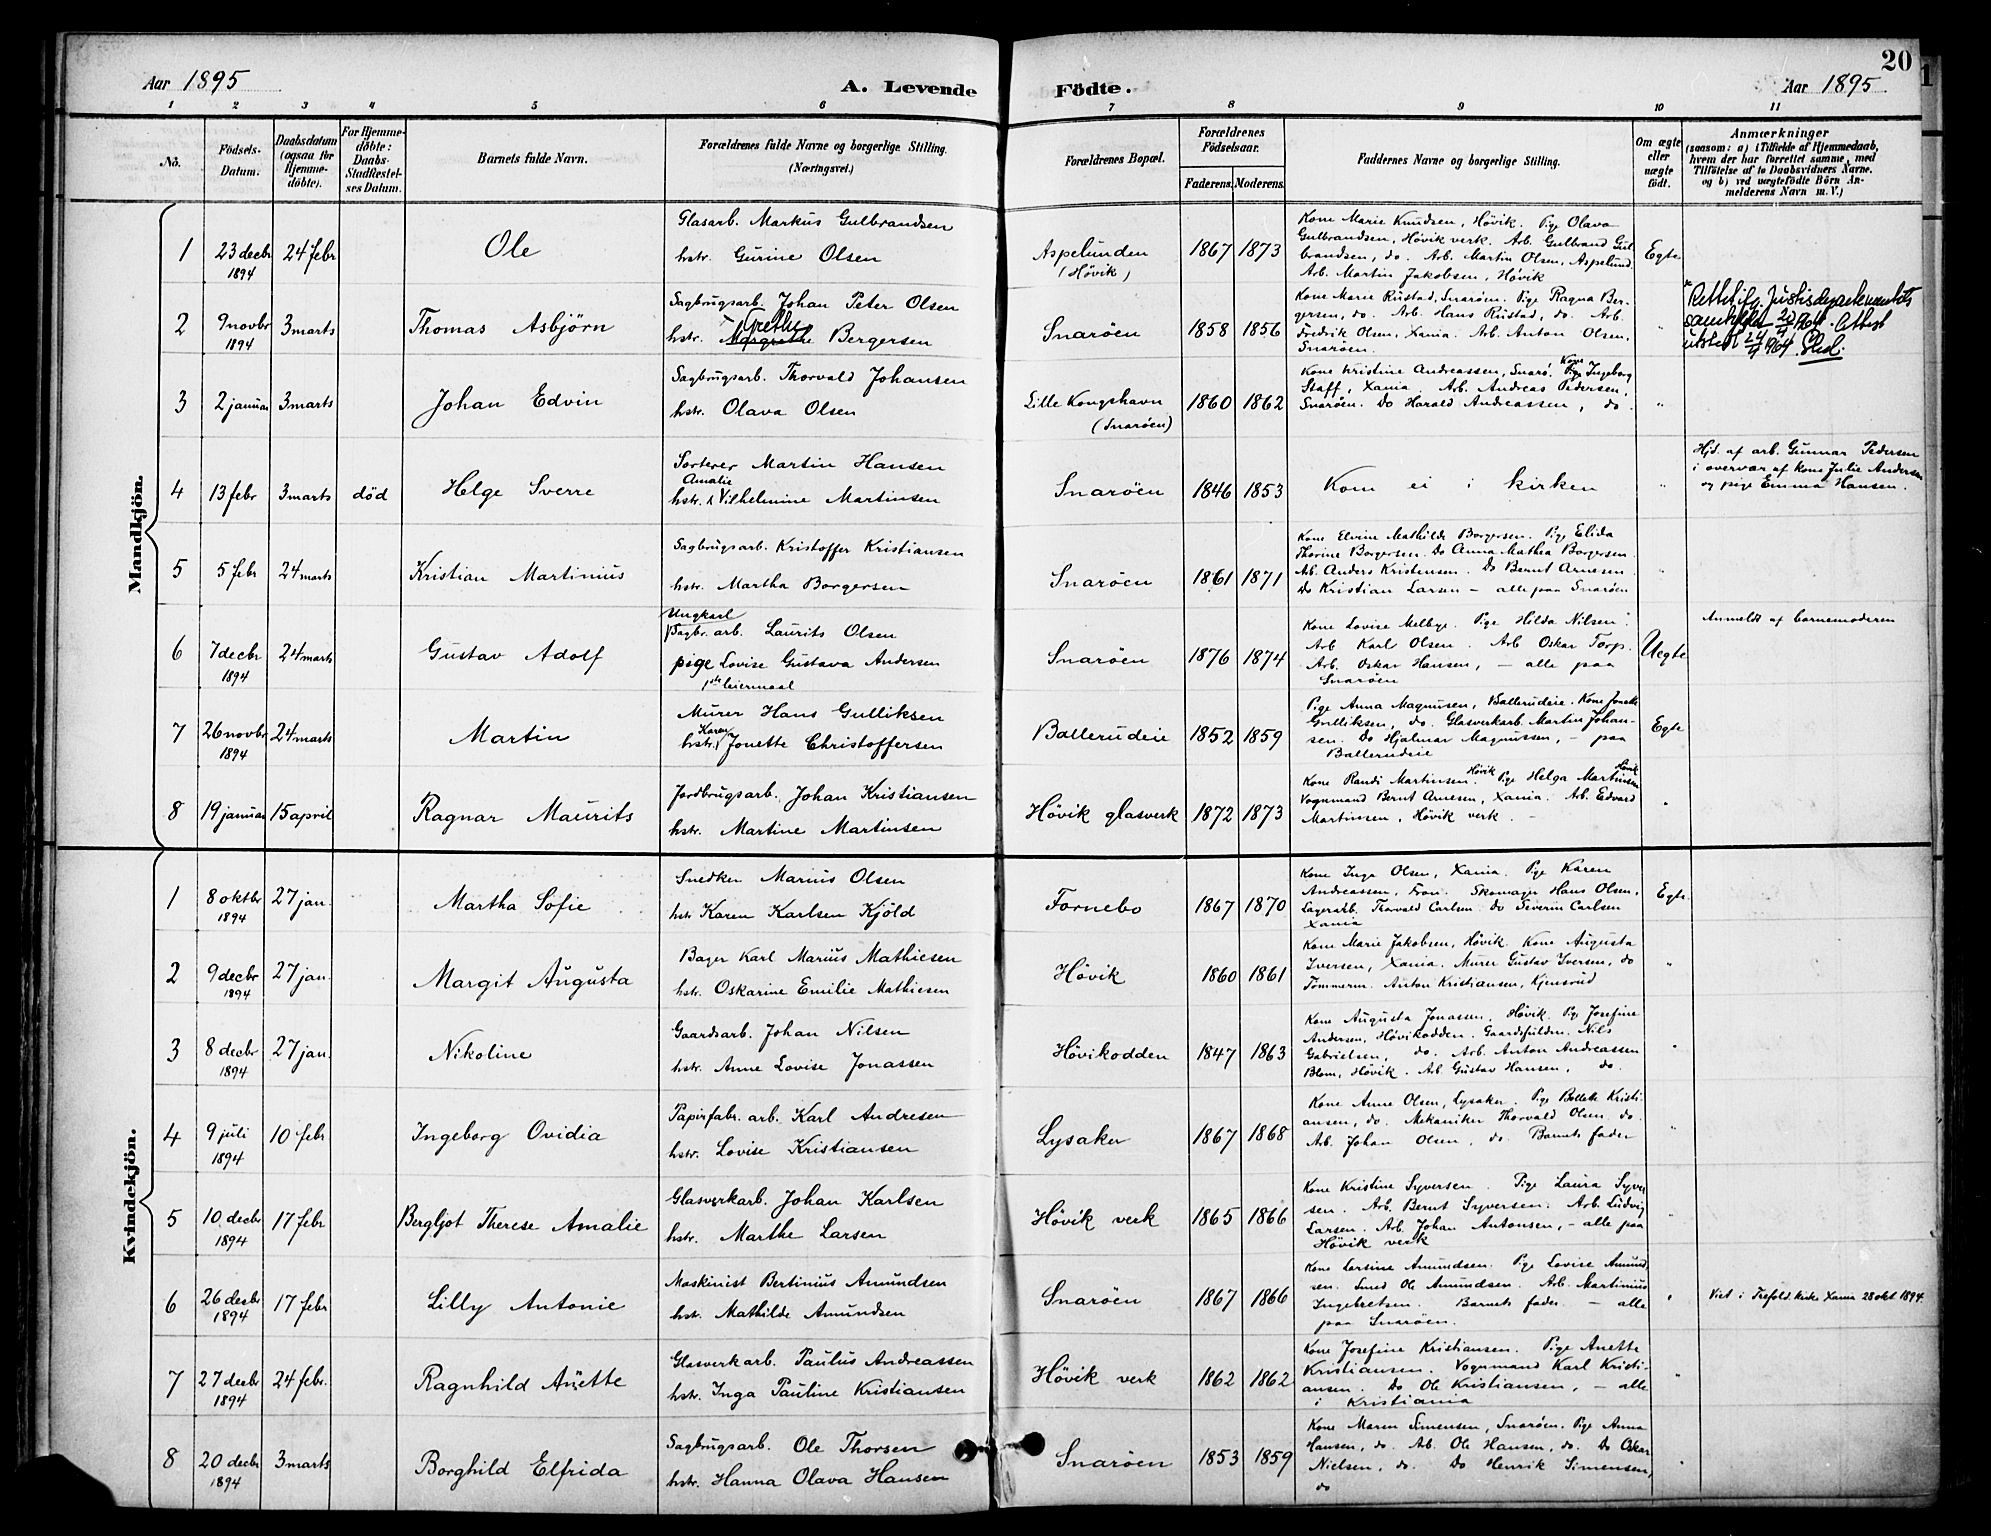 Aar 1895
A. Levende
Födte.
Aar 1895
20
1 2 3 4 5 6 7 8 9 10 11
No.
Födsels-
Datum.
Daabsdatum
(ogsaa for
Hjemme-
döbte).
For Hjemme-
döbte:
Daabs-
Stadfæstel-
ses Datum.
Barnets fulde Navn.
Forældrenes fulde Navne og borgerlige Stilling.
(Næringsvei.)
Forældrenes Bopæl.
Forældrenes
Födselsaar.
Faderens. Moderens.
Faddernes Navne og borgerlige Stilling.
Om ægte
eller
uægte
födt.
Anmærkninger
(saasom: a) i Tilfælde af Hjemmedaab,
hvem der har forrettet samme, med
Tilföielse af to Daabsvidners Navne.
og b) ved uægtefödte Börn An-
melderens Navn m. V.)
Mandkjön.
1
23 decbr
1894
24 febr
Ole
Glasarb. Markus Gulbrandsen
hstr. Gurine Olsen
Aspelunden
(Høvik)
1867 1873
Kone Marie Knudsen, Høvik. Pige Olava
Gulbrandsen, Høvik verk. Arb. Gulbrand Gul-
brandsen, do. Arb. Martin Olsen, Aspelund.
Arb. Martin Jakobsen, Høvik
Egte
2
9 novbr
1894
3 marts
Thomas Asbjörn
Sagbrugsarb. Johan Peter Olsen
Grethe
hstr. Margrethe Bergersen
Snarøen
1858 1856
Kone Marie Rustad, Snarøen. Pige Ragna Ber-
gersen, do. Arb. Hans Rustad, do. Arb.
Fredrik Olsen, Xania. Arb. Anton Olsen,
Snarøen.
"
Rettet ifg. Justisdepartementets
samtykke 20/4 1964. Attest
utstedt 24/4 1964.
3
2 januar
3 marts
Johan Edvin
Sagbrugsarb. Thorvald Johansen
hstr. Olava Olsen
Lille Kongshavn
(Snarøen)
1860 1862
Kone Kristine Andreassen, Snarø. Kone Pige Ingeborg
Staff, Xania. Arb. Andreas Pedersen,
Snarøen. Do Harald Andreassen, do.
"
4
13 febr
3 marts
död
Helge Sverre
Sorterer Martin Hansen
Amalie
hstr. Vilhelmine Martinsen
Snarøen
1846 1853
Kom ei i kirken
"
Hjd. af arb. Gunnar Pedersen
i overvær af kone Julie Andersen
og pige Emma Hansen.
5
5 febr
24 marts
Kristian Martinius
Sagbrugsarb. Kristoffer Kristiansen
hstr. Martha Borgersen
Snarøen
1861 1871
Kone Elvine Mathilde Borgersen. Pige Elida
Thorine Borgersen. Do Anna Mathea Borgersen
Arb. Anders Kristensen. Do Bernt Arnesen.
Do Kristian Larsen – alle paa Snarøen
"
6
7 decbr
1894
24 marts
Gustav Adolf
Ungkarl
Sagbr. arb. Laurits Olsen
pige Lovise Gustava Andersen
1ste leiermaal
Snarøen
1876 1874
Kone Lovise Melbye. Pige Hilda Nilsen.
Arb Karl Olsen. Arb Oskar Torp.
Arb. Oskar Hansen, – alle paa
Snarøen
Uegte
Anmeldt af barnemoderen
7
26 novbr
1894
24 marts
Martin
Murer Hans Gulliksen
Karen
hstr. Jonette Christoffersen
Ballerudeie
1852 1859
Pige Anna Magnusen, Ballerudeie. Kone Jonette
Gulliksen, do. Glasverkarb. Martin Johan-
sen. Do Hjalmar Magnussen, – paa
Ballerudeie
Egte
8
19 januar
15 april
Ragnar Maurits
Jordbrugsarb. Johan Kristiansen
hstr. Martine Martinsen
Høvik glasverk
1872 1873
Kone Randi Martinsen Høvik. Pige Helga Martinsen Høvik
Vognmand Bernt Arnesen, Xania. Arb. Edvard
Martinsen, Høvik verk. –
"
Kvindekjön.
1
8 oktbr
1894
27 jan.
Martha Sofie
Snedker Marius Olsen
hstr Karen Karlsen Kjöld
Fornebo
1867 1870
Kone Inga Olsen, Xania. Pige Karen
Andreassen, Fron. Skomager Hans Olsen,
Lagerarb. Thorvald Carlsen. do Severin Carlsen
Xania
Egte
2
9 decbr
1894
27 jan.
Margit Augusta
Bager Karl Marius Mathiesen
hstr. Oskarine Emilie Mathiesen
Høvik
1860 1861
Kone Marie Jakobsen, Høvik. Kone Augusta
Iversen, Xania. Murer Gustav Iversen, do
Tömmerm. Anton Kristiansen, Kjensrud
"
3
8 decbr
1894
27 jan.
Nikoline
Gaardsarb. Johan Nilsen
hstr. Anne Lovise Jonassen
Høvikodden
1847 1863
Kone Augusta Jonassen, Høvik. Pige Josefine
Andersen, Høvikodden. Gaardsfuldm. Nils
Gabrielsen, do. Arb. Anton Andreassen
Blom, Høvik. Arb Gustav Hansen, do.
"
4
9 juli
1894
10 febr
Ingeborg Ovidia
Papirfabr. arb. Karl Andresen
hstr. Lovise Kristiansen
Lysaker
1867 1868
Kone Anne Olsen, Lysaker. Pige Bollette Kristi-
ansen, do. Mekaniker Thorvald Olsen, do.
Arb. Johan Olsen, do. Barnets fader
"
5
10 decbr
1894
17 febr
Bergljot Therese Amalie
Glasverkarb. Johan Karlsen
hstr. Marthe Larsen
Høvik verk
1865 1866
Kone Kristine Syversen. Pige Laura Syver
sen. Arb. Bernt Syversen. Arb. Ludvig
Larsen. Arb. Johan Antonsen, – alle paa
Høvik verk
"
6
26 decbr
1894
17 febr
Lilly Antonie
Maskinist Bertinius Amundsen
hstr. Mathilde Amundsen
Snarøen
1867 1866
Kone Larsine Amundsen. Pige Lovise Amund
sen. Smed Ole Amundsen. Arb. Martinius
Ingebretsen. Barnets fader. – alle
paa Snarøen.
"
Viet i Trefold. kirke Xania 28 okt 1894.
7
27 decbr
1894
24 febr.
Ragnhild Anette
Glasverkarb. Paulus Andreassen
hstr. Inga Pauline Kristiansen
Høvik verk
1862 1862
Kone Josefine Kristiansen. Pige Anette
Kristiansen. Vognmand Karl Kristi-
ansen. Do Ole Kristiansen, – alle
i Kristiania
"
8
20 decbr
1894
3 marts
Borghild Elfrida
Sagbrugsarb. Ole Thorsen
hstr. Hanna Olava Hansen
Snarøen
1853 1859
Kone Maren Simensen, Snarøen. Pige Anna
Hansen, do. Arb. Ole Hansen, do. Do Oskar
Nielsen, do. Do Henrik Simensen,
do
"